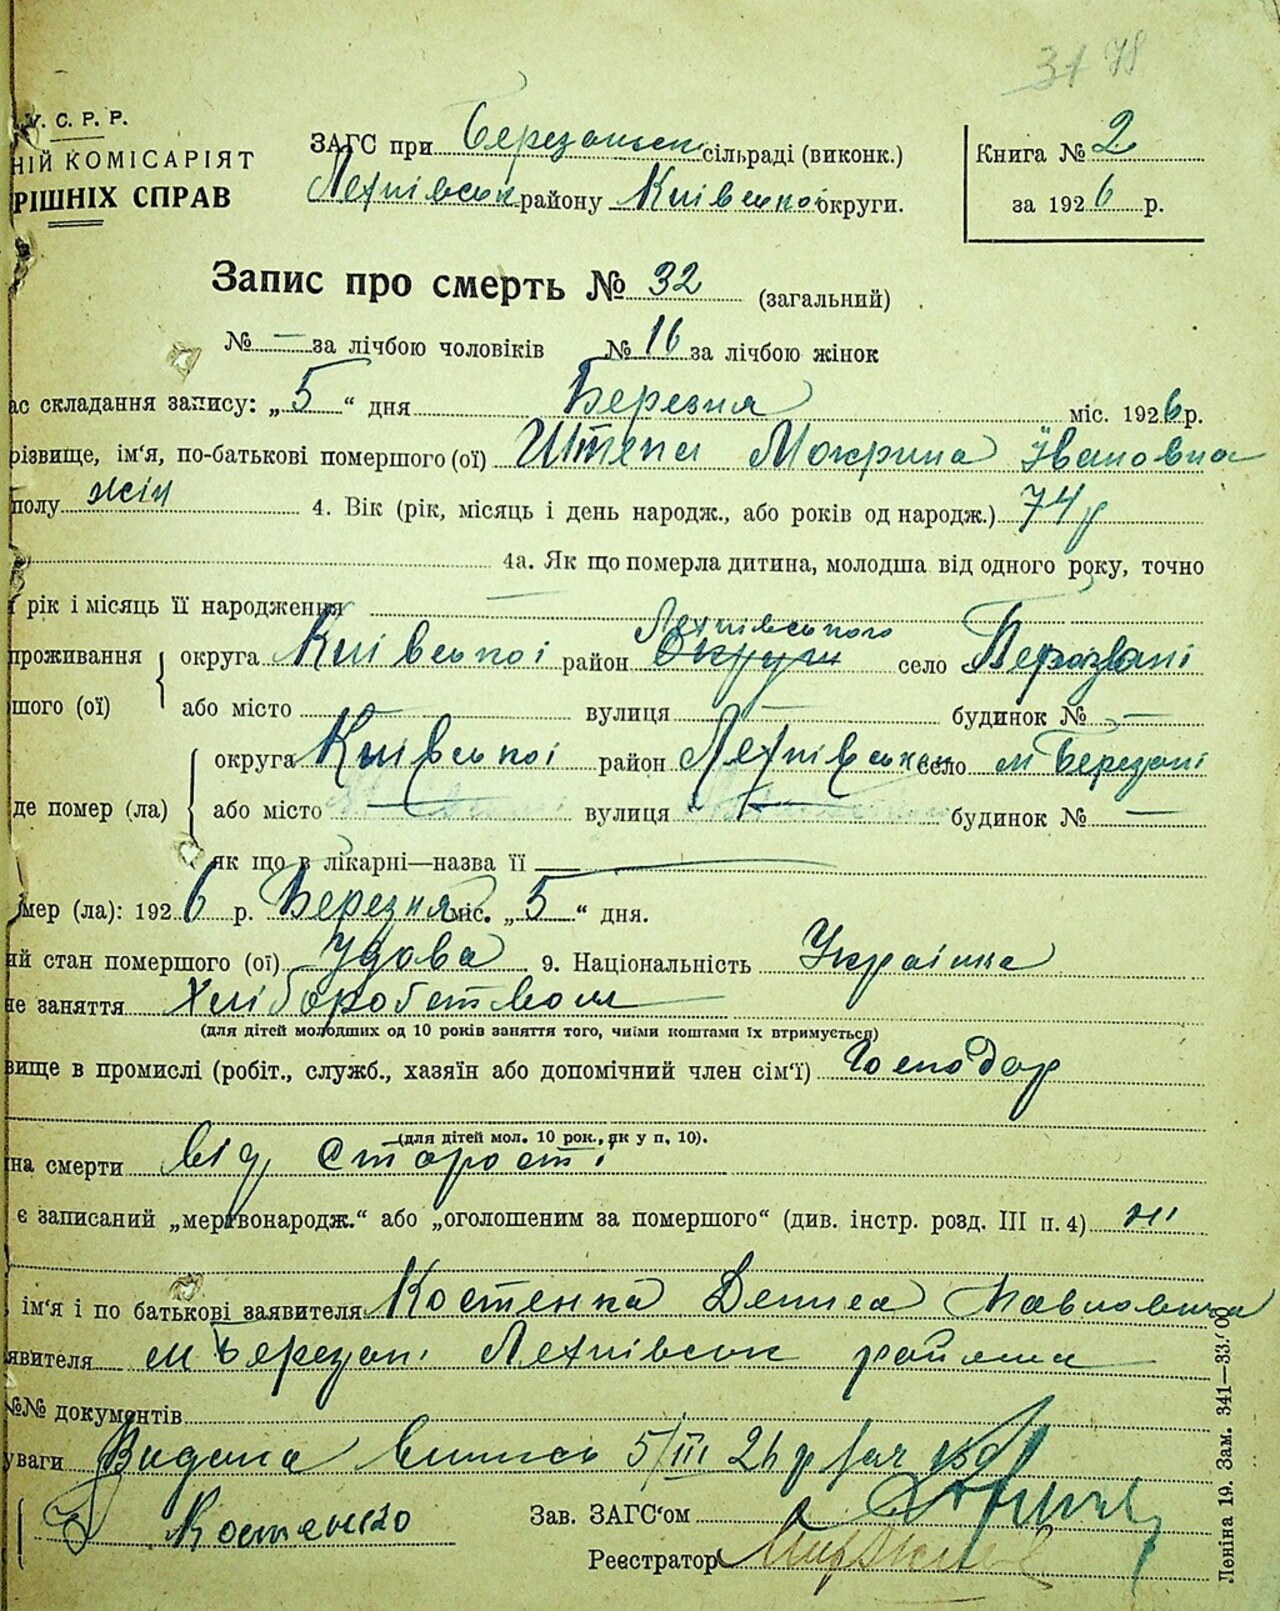 31 78
У. С. Р. Р.
НІЙ КОМІСАРІЯТ
РІШНІХ СПРАВ
ЗАГС при Березанськ сільраді (виконк.)
Лехнівськ району Київської округи.
Книга № 2
за 1926 р.
Запис про смерть № 32 (загальний)
№ — за лічбою чоловіків № 16 за лічбою жінок
ас складання запису: „5“ дня Березня міс. 1926 р.
різвище, ім‘я, по-батькові помершого (ої) Штепа Мокрина Івановна
полу жін 4. Вік (рік, місяць і день народж., або років од народж.) 74 р
4а. Як що померла дитина, молодша від одного року, точно
рік і місяць її народження —
Лехнівського
проживання округа Київської район село Березані
шого (ої) або місто — вулиця — будинок № —
округа Київської район Лехнівськ село м Березані
де помер (ла) або місто — вулиця — будинок № —
як що в лікарні—назва її —
мер (ла): 1926 р. Березня міс. „5“ дня.
ий стан помершого (ої) Удова 9. Національність Українка
не заняття Хліборобством
(для дітей молодших од 10 років заняття того, чиїми коштами їх втримується)
вище в промислі (робіт., служб., хазяїн або допомічний член сім‘ї) Господар
(для дітей мол. 10 рок., як у п, 10).
на смерти від старості
є записаний „мертвонародж.“ або „оголошеним за помершого“ (див. інстр. розд. III п. 4) ні
ім‘я і по батькові заявителя Костенка Дениса Павловича
явителя м Березані Лехнівськ района
№№ документів
уваги Видана випись 5/III 26 р
Костенко
Зав. ЗАГС‘ом
Реєстратор
Леніна 19. Зам. 341—33.